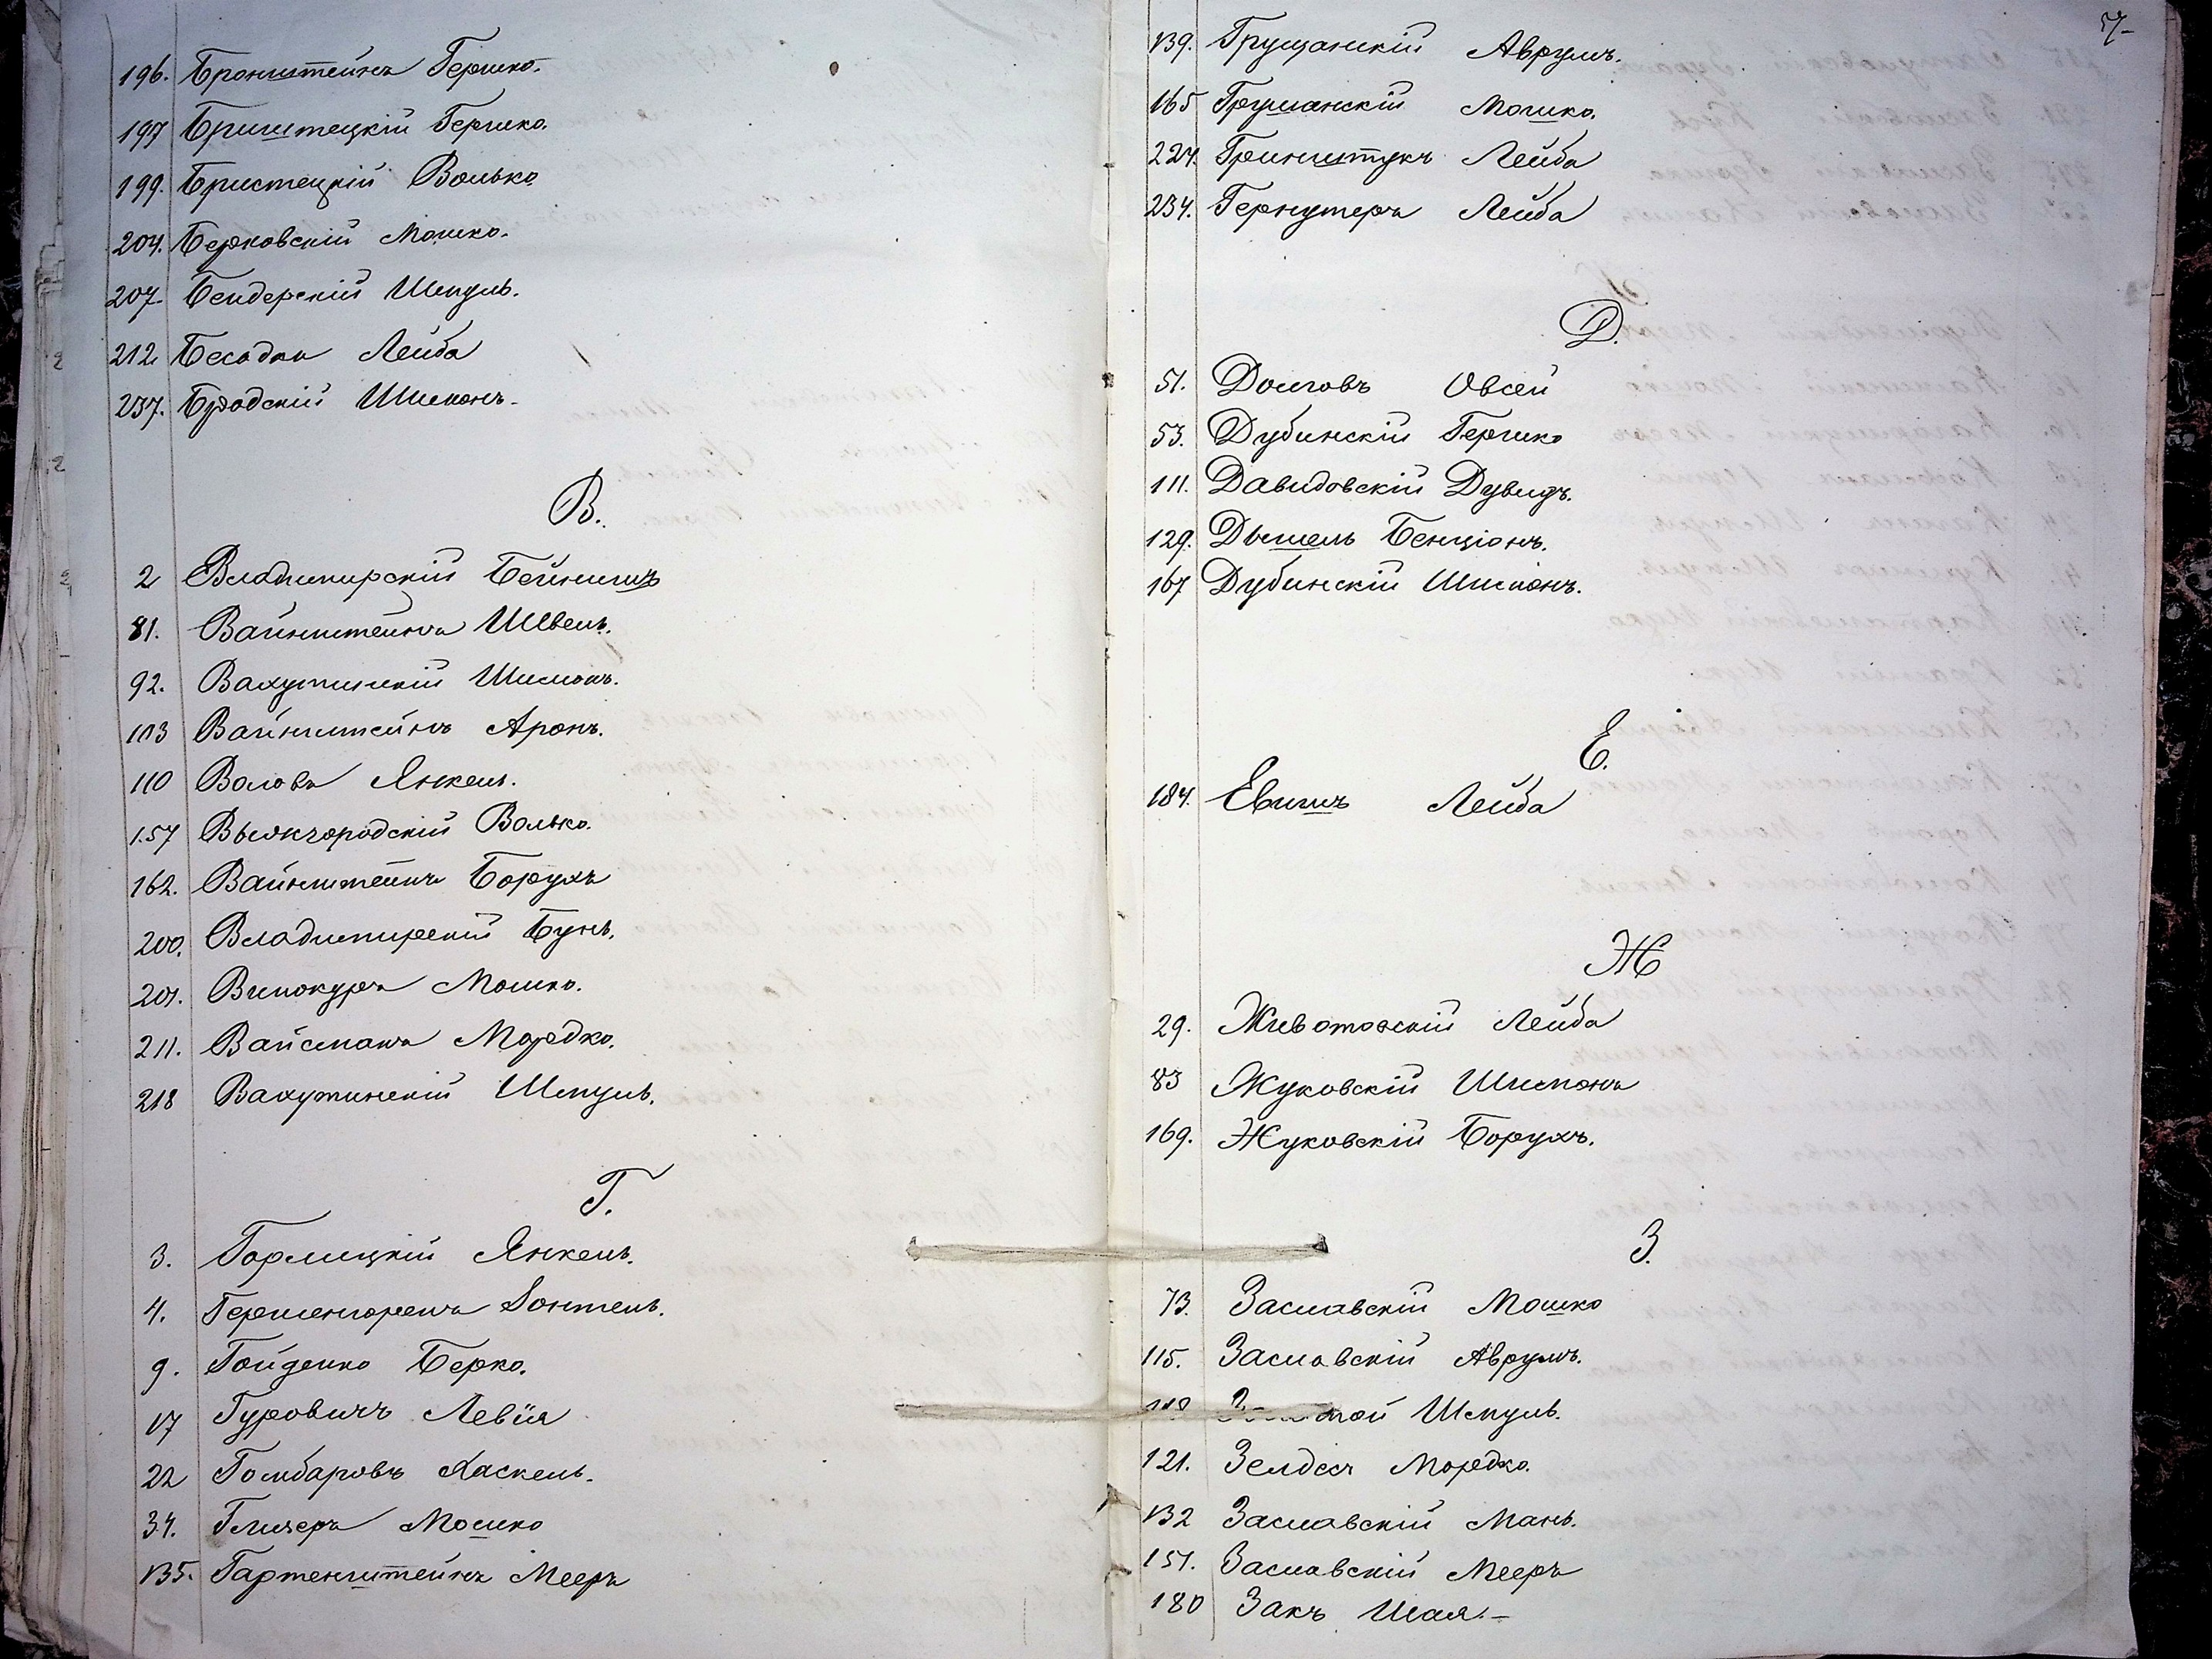 196. Бронштейнъ Гершко.
197 Бриштецкій Гершко.
199. Бристецкій Волько
204. Берковскій Мошко.
207. Бендерскій Шмуль.
212 Бесадка Лейба
237. Бродскій Шимонъ.
В.
2 Владимирскій Бейнишъ
81. Вайнштейнъ Швель.
92. Вахутинскій Шимонъ.
103 Вайнштейнъ Аронъ.
110 Волова Янкель.
157 Волько.
162. Вайнштейнъ Борухъ
200. Владимирскій Бунь.
201. Винокуръ Мошко.
211. Вайсманъ Мордко.
218 Вахутинскій Шмуль.
Г.
3. Горлицкій Янкель.
4. Гершенгоренъ
9. Гойденко Берко.
17 Гуровичъ Левія
22 Гомбаровъ Хаскель.
34. Глизеръ Мошко
135. Гартенштейнъ Мееръ
57
139. Грущанскій Аврумъ.
165 Грушанскій Мошко.
224. Гринштукъ Лейба
234. Гернутеръ Лейба
Д.
51. Долговъ Овсей
53. Дубинскій Гершко
111. Давидовскій Дувидъ.
129. Дышель Бенціонъ.
167 Дубинскій Шимонъ.
Е.
184. Евишъ Лейба
Ж
29. Животовскій Лейба
83 Жуковскій Шимонъ
169. Жуковскій Борухъ.
З.
73. Заславскій Мошко
115. Заславскій Аврумъ.
Шмуль.
121. Зелдесъ Мордко.
132 Заславскій Мань.
151. Заславскій Мееръ
180 Закъ Шая.-